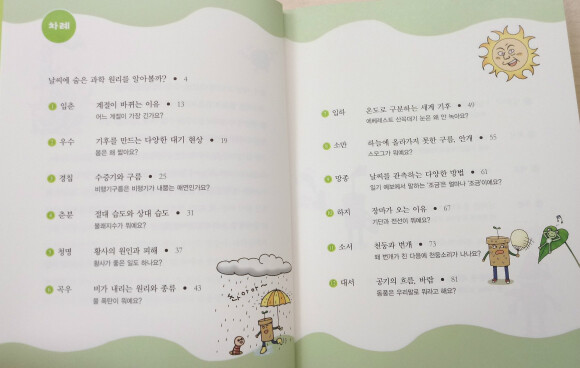 차례
날씨에 숨은 과학 원리를 알아볼까? • 4
1 입춘 계절이 바뀌는 이유 • 13
어느 계절이 가장 긴가요?
2 우수 기후를 만드는 다양한 대기 현상 • 19
봄은 왜 짧아요?
3 경칩 수증기와 구름 • 25
비행기구름은 비행기가 내뿜는 매연인가요?
4 춘분 절대 습도와 상대 습도 • 31
불쾌지수가 뭐예요?
5 청명 황사의 원인과 피해 • 37
황사가 좋은 일도 하나요?
6 곡우 비가 내리는 원리와 종류 • 43
물 폭탄이 뭐예요?
쏴아아~
7 입하 온도로 구분하는 세계 기후 • 49
에베레스트 산꼭대기 눈은 왜 안 녹아요?
8 소만 하늘에 올라가지 못한 구름, 안개 • 55
스모그가 뭐예요?
9 망종 날씨를 관측하는 다양한 방법 • 61
일기 예보에서 말하는 '조금'은 얼마나 '조금'이에요?
10 하지 장마가 오는 이유 • 67
기단과 전선이 뭐예요?
11 소서 천둥과 번개 • 73
왜 번개가 친 다음에 천둥소리가 나나요?
12 대서 공기의 흐름, 바람 • 81
돌풍은 우리말로 뭐라고 해요?